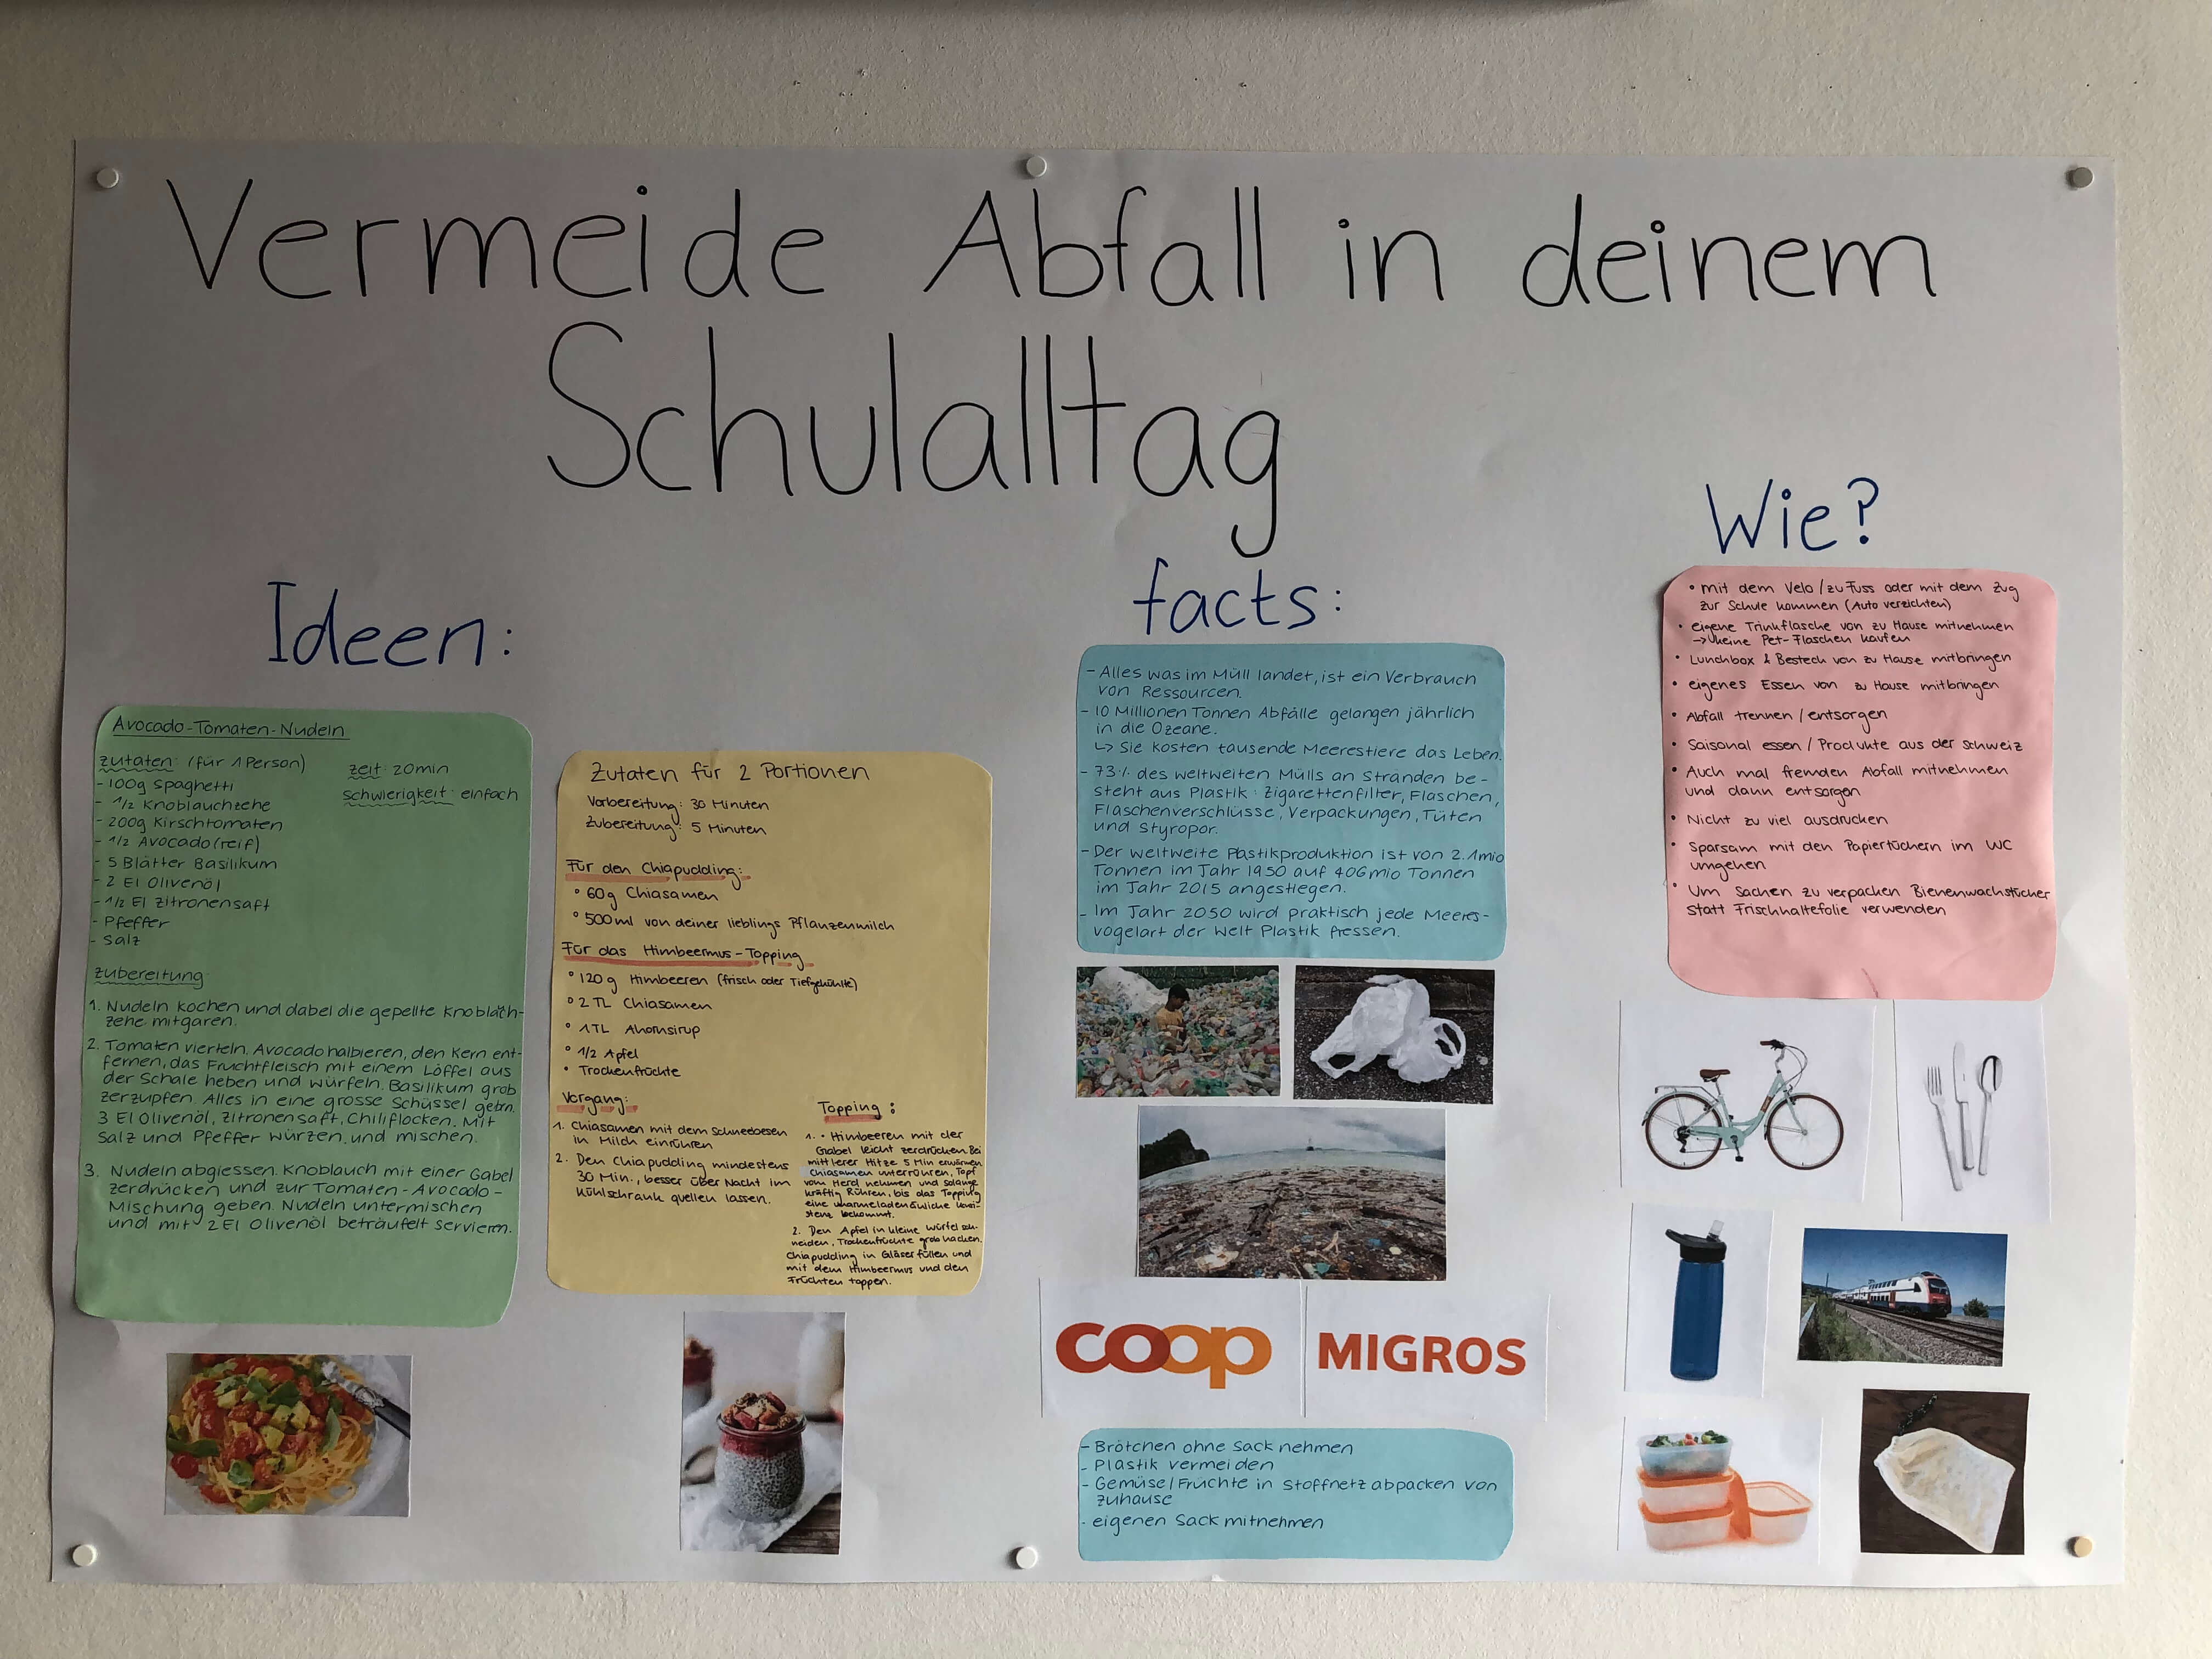 Vermeide Abfall in deinem
Schulalltag
Ideen:
Avocado-Tomaten-Nudeln
Zutaten: (für 1 Person)
- 100g Spaghetti
- 1/2 Knoblauchzehe
- 200g Kirschtomaten
- 1/2 Avocado (reif)
- 5 Blätter Basilikum
- 2 El Olivenöl
- 1/2 El Zitronensaft
- Pfeffer
- Salz
Zeit: 20min
Schwierigkeit: einfach
Zubereitung
1. Nudeln kochen und dabei die gepellte
zehe mitgaren.
2. Tomaten vierteln. Avocado halbieren, den Kern ent-
fernen, das Fruchtfleisch mit einem Löffel aus
der Schale heben und würfeln. Basilikum grob
zerzupfen. Alles in eine grosse Schüssel
3 El Olivenöl, Zitronensaft, Chiliflocken. Mit
Salz und Pfeffer würzen, und mischen.
3. Nudeln abgiessen. Knoblauch mit einer Gabel
zerdrücken und zur Tomaten-Avocado-
Mischung geben. Nudeln untermischen
und mit 2 El Olivenöl beträufelt
Zutaten für 2 Portionen
Vorbereitung: 30 Minuten
Zubereitung: 5 Minuten
Für den Chiapudding:
° 60g Chiasamen
° 500ml von deiner lieblings Pflanzenmilch
Für das Himbeermus-Topping
° 120g Himbeeren (frisch oder Tiefgekühlte)
° 2 TL Chiasamen
° 1TL Ahornsirup
° 1/2 Apfel
° Trockenfrüchte
Vorgang:
1. Chiasamen mit dem Schneebesen
in Milch einrühren
2. Den Chiapudding mindestens
30 Min., besser über Nacht im
Kühlschrank quellen lassen.
Topping:
1. • Himbeeren mit der
Gabel leicht zerdrücken. Bei
mittlerer Hitze 5 Min erwärmen
Chiasamen unterrühren, Topf
vom Herd nehmen und solange
kräftig Rühren, bis das Topping
eine
bekommt.
2. Den Apfel in kleine Würfel sch-
neiden, Trockenfrüchte grob hacken.
Chiapudding in Gläser füllen und
mit dem Himbeermus und den
Früchten toppen.
facts:
- Alles was im Müll landet, ist ein Verbrauch
von Ressourcen.
- 10 Millionen Tonnen Abfälle gelangen jährlich
in die Ozeane.
↳ Sie kosten tausende Meerestiere das Leben.
- 73% des weltweiten Mülls an Stränden be-
steht aus Plastik: Zigarettenfilter, Flaschen,
Flaschenverschlüsse, Verpackungen, Tüten
und Styropor.
- Der weltweite Plastikproduktion ist von 2.1mio
Tonnen im Jahr 1950 auf 406mio Tonnen
im Jahr 2015 angestiegen.
- Im Jahr 2050 wird praktisch jede Meeres-
vogelart der Welt Plastik fressen.
coop
MIGROS
- Brötchen ohne Sack nehmen
- Plastik vermeiden
- Gemüse/Früchte in Stoffnetz abpacken von
zuhause
- eigenen Sack mitnehmen
Wie?
• mit dem Velo / zu Fuss oder mit dem Zug
zur Schule kommen (Auto verzichten)
• eigene Trinkflasche von zu Hause mitnehmen
→ keine Pet-Flaschen kaufen
• Lunchbox & Besteck von zu Hause mitbringen
• eigenes Essen von zu Hause mitbringen
• Abfall trennen / entsorgen
• Saisonal essen / Produkte aus der Schweiz
• Auch mal fremden Abfall mitnehmen
und dann entsorgen
• Nicht zu viel ausdrucken
• Sparsam mit den Papiertüchern im WC
umgehen
• Um Sachen zu verpacken Bienenwachstücher
statt Frischhaltefolie verwenden